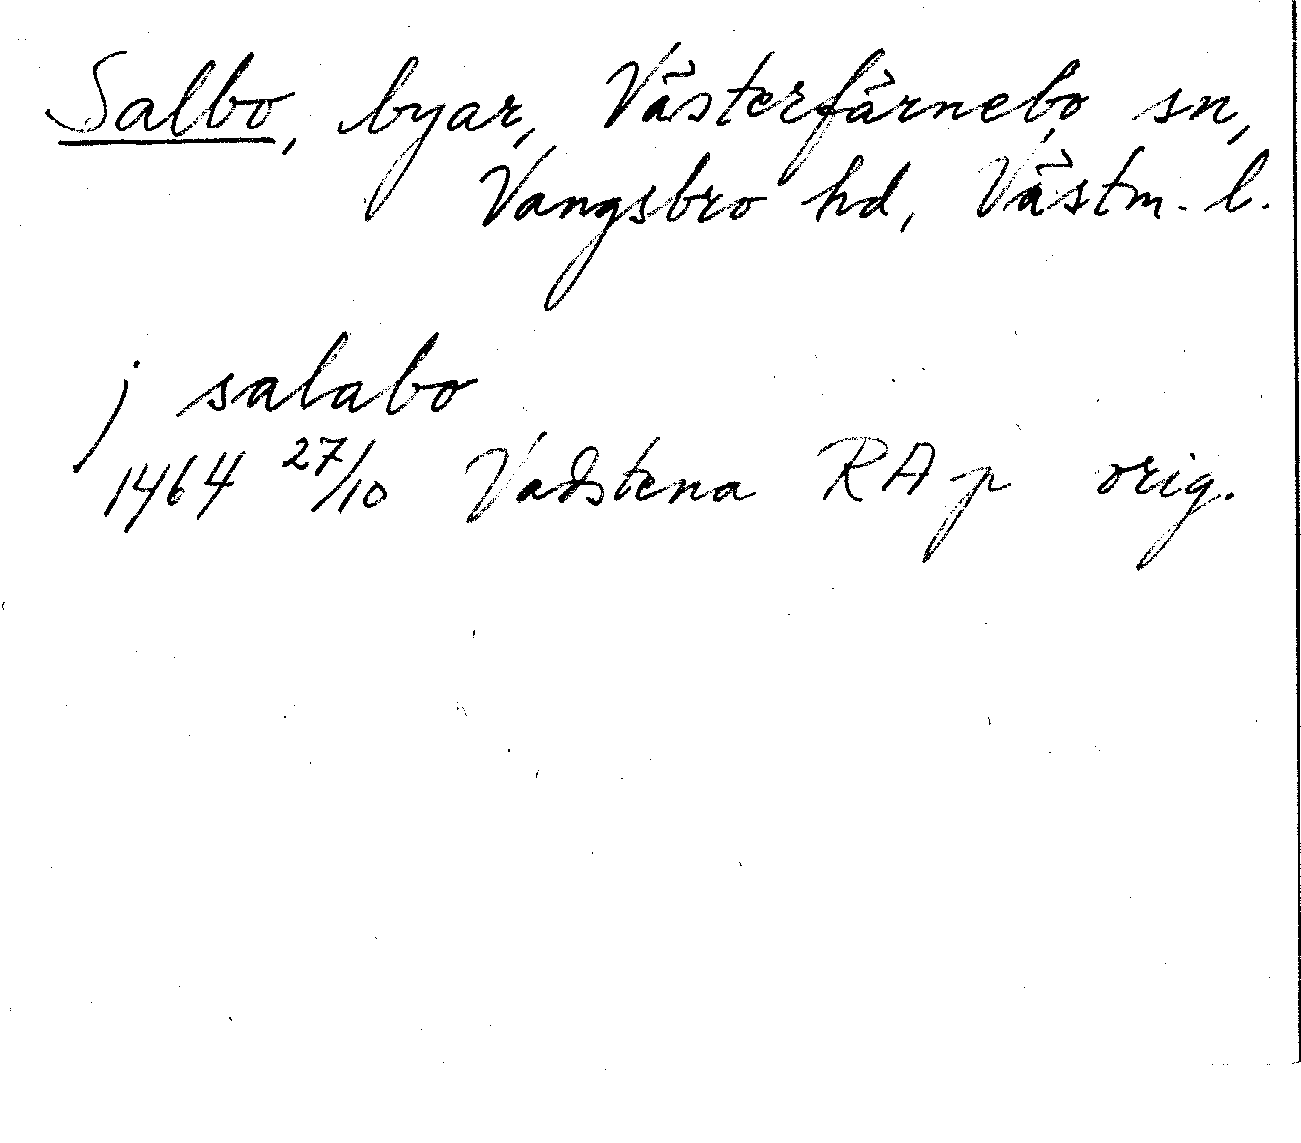 Salbo, byar, Västerfärnebo sn,
Vangsbro hd, Västm. l.
j salabo
1464 27/10 Vadstena RAp orig.